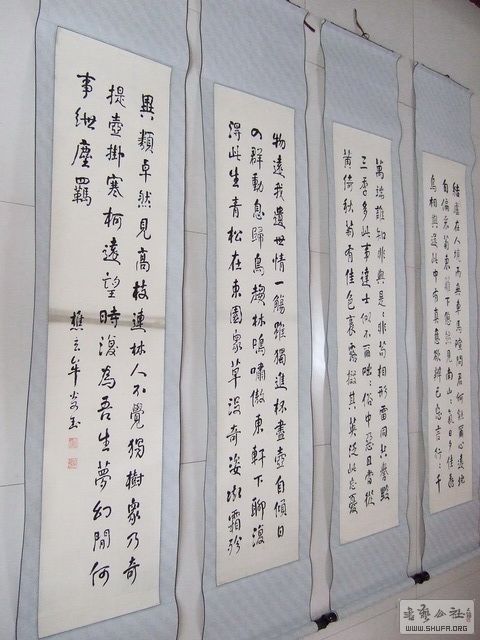 結廬在人境而無車馬喧問君何能爾心遠地
自偏采菊東籬下悠然見南山氣日夕佳飛
鳥相與還此中有真意欲辨已忘言行:千
萬端誰知非與是:非苟相形雷同共譽毀
三季多此事達士似不爾咄:俗中惡且當從
黃綺秋菊有佳色裛露掇其英汎此忘憂
物遠我遺世情一觴雖獨進杯盡壺自傾日
入群動息歸鳥趨林鳴嘯傲東軒下聊復
得此生青松在東園眾草沒奇姿凝霜殄
異類卓然見高枝連林人不覺獨樹眾乃奇
提壺掛寒柯遠望時復為吾生夢幻間何
事紲塵羈
書法公社
WWW.SHUFA.ORG